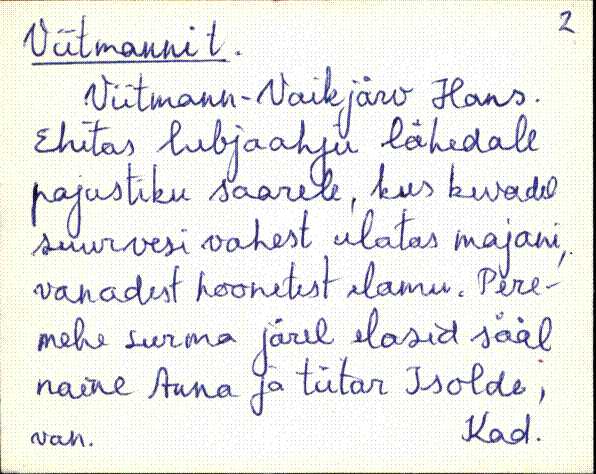 2
Viitmanni t.
Viitmann-Vaikjärv Hans.
Ehitas lubjaahju lähedale
pajustiku saarele, kus kevadel
suurvesi vahest ulatas majani,
vanadest hoonetest elamu. Pere-
mehe surma järel elasid sääl
naine Anna ja tütar Isolde;
van. Kad.